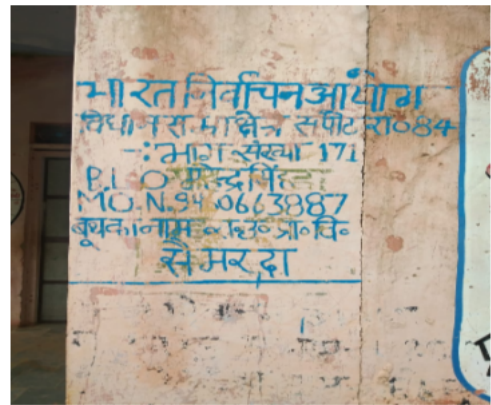 भारत निर्वाचन आयोग
विधान सभा क्षेत्र सपोटरा०84
-: भाग संख्या 171
B.L.O
M.O.N.94 0663887
बूथ का नाम रा०उ०प्रा०वि०
सेमरदा